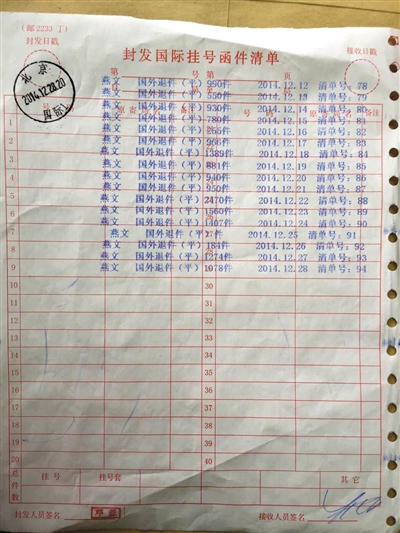 (邮2233 丁)
封发日戳
封发国际挂号函件清单
接收日戳
北京
2014.12.28.20
国际
第 号 第 页
燕文 国外退件(平)990件 2014.12.12 清单号:78
燕文 国外退件(平)550件 2014.12.13 清单号:79
燕文 国外退件(平)930件 2014.12.14 清单号:80
燕文 国外退件(平)780件 2014.12.15 清单号:81
燕文 国外退件(平)660件 2014.12.16 清单号:82
燕文 国外退件(平)966件 2014.12.17 清单号:83
燕文 国外退件(平)1389件 2014.12.18 清单号:84
燕文 国外退件(平)881件 2014.12.19 清单号:85
燕文 国外退件(平)940件 2014.12.20 清单号:86
燕文 国外退件(平)950件 2014.12.21 清单号:87
燕文 国外退件(平)2470件 2014.12.22 清单号:88
燕文 国外退件(平)1560件 2014.12.23 清单号:89
燕文 国外退件(平)1407件 2014.12.24 清单号:90
燕文 国外退件(平) 件 2014.12.25 清单号:91
燕文 国外退件(平)184件 2014.12.26 清单号:92
燕文 国外退件(平)1274件 2014.12.27 清单号:93
燕文 国外退件(平)1078件 2014.12.28 清单号:94
备注
1
2
3
4
5
6
7
8
9
10 30
11 31
12 32
13 33
14 34
15 35
16 36
17 37
18 38
19 39
20 40
总件数 挂号 挂号套 其它
封发人员签名 接收人员签名